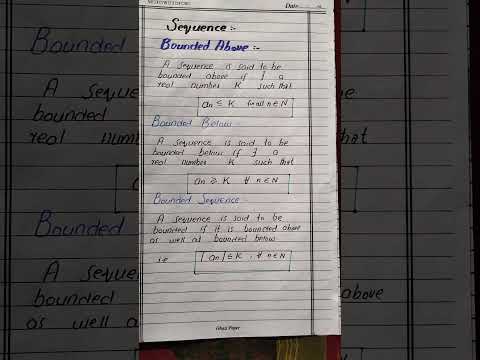 Date
Sequence :-
Bounded Above :-
A sequence is said to be
bounded above if ∃ a
real number K such that
an ≤ K for all n ∈ N
Bounded Below
A sequence is said to be
bounded below if ∃ a
real number K such that
an ≥ K ∀ n ∈ N
Bounded Sequence
A sequence is said to be
bounded if it is bounded above
as well as bounded below
i.e |an| ≤ K , ∀ n ∈ N